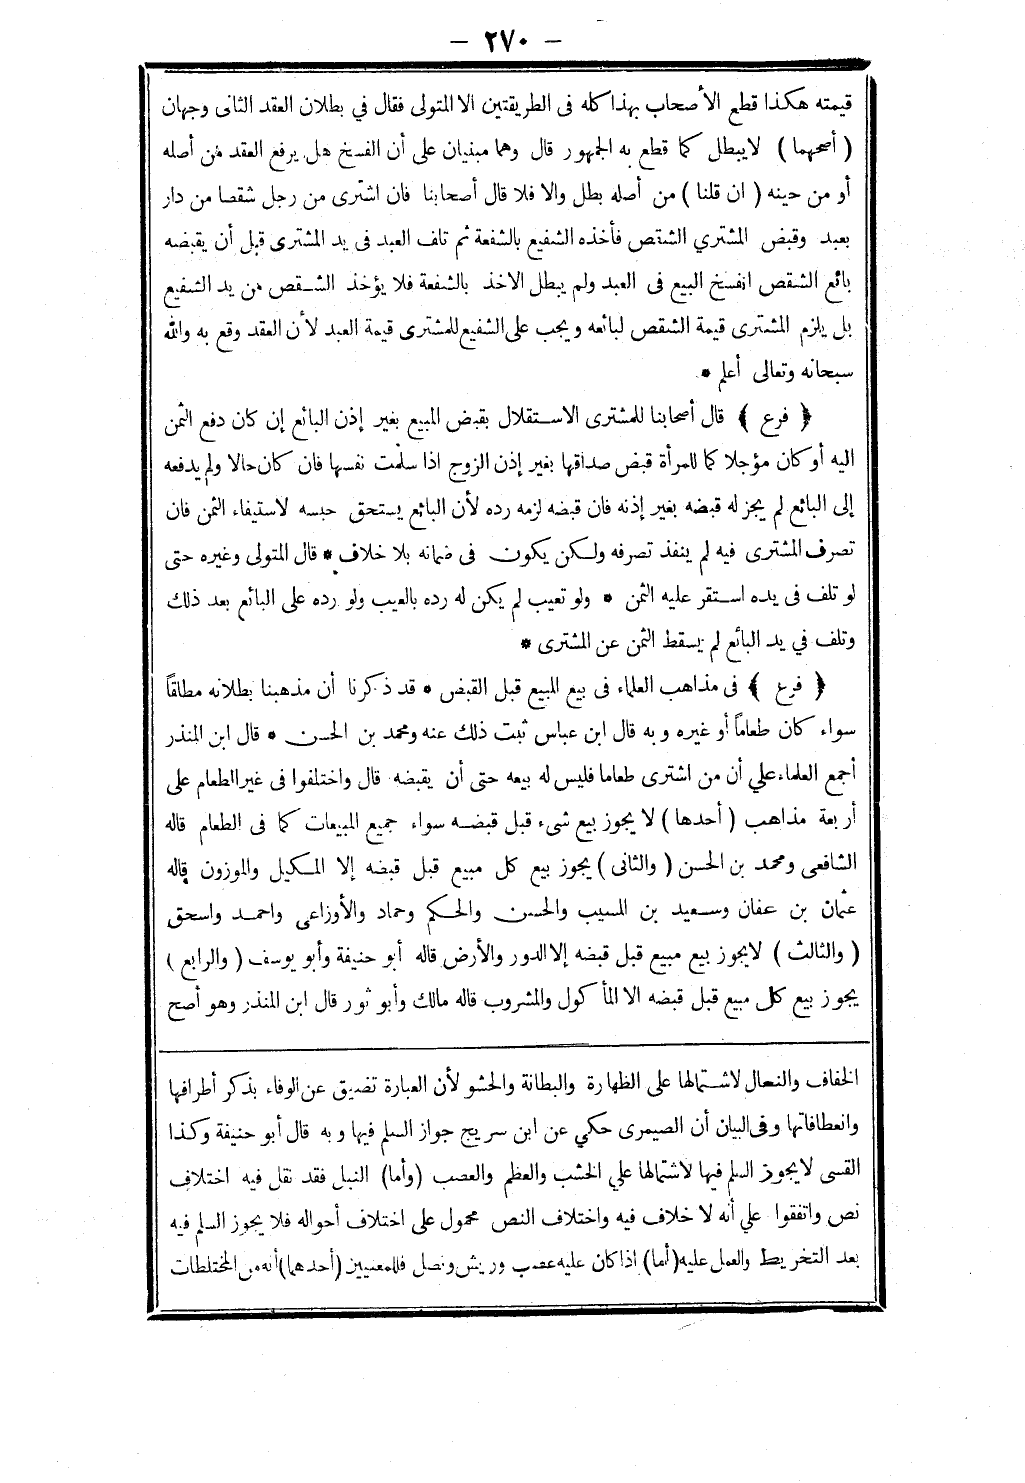 — ٢٧٠ —
قيمته هكذا قطع الأصحاب بهذا كله فى الطريقتين الا المتولى فقال في بطلان العقد الثانى وجهان
( أصحهما ) لايبطل كما قطع به الجمهور قال وهما مبنيان على أن الفسخ هل يرفع العقد من أصله
أو من حينه ( ان قلنا ) من أصله بطل والا فلا قال أصحابنا فان اشترى من رجل شقصا من دار
بعبد وقبض المشتري الشقص فأخذه الشفيع بالشفعة ثم تلف العبد فى يد المشترى قبل أن يقبضه
بائع الشقص انفسخ البيع فى العبد ولم يبطل الاخذ بالشفعة فلا يؤخذ الشـقص من يد الشفيع
بل يلزم المشترى قيمة الشقص لبائعه ويجب على الشفيع للمشترى قيمة العبد لأن العقد وقع به والله
سبحانه وتعالى أعلم *
﴿ فرع ﴾ قال أصحابنا للمشترى الاسـتقلال بقبض المبيع بغير إذن البائع إن كان دفع الثمن
اليه أو كان مؤجلا كما للمرأة قبض صداقها بغير إذن الزوج اذا سلمت نفسها فان كان حالا ولم يدفعه
إلى البائع لم يجز له قبضه بغير إذنه فان قبضه لزمه رده لأن البائع يستحق حبسه لاستيفاء الثمن فان
تصرف المشترى فيه لم ينفذ تصرفه ولكن يكون فى ضمانه بلا خلاف * قال المتولى وغيره حتى
لو تلف فى يده اسـتقر عليه الثمن * ولو تعيب لم يكن له رده بالعيب ولو رده على البائع بعد ذلك
وتلف في يد البائع لم يسقط الثمن عن المشترى *
﴿ فرع ﴾ فى مذاهب العلماء فى بيع المبيع قبل القبض * قد ذكرنا أن مذهبنا بطلانه مطلقاً
سواء كان طعاماً أو غيره وبه قال ابن عباس ثبت ذلك عنه ومحمد بن الحسن * قال ابن المنذر
أجمع العلماء علي أن من اشترى طعاما فليس له بيعه حتى أن يقبضه قال واختلفوا فى غير الطعام على
أربعة مذاهب ( أحدها ) لا يجوز بيع شىء قبل قبضـه سواء جميع المبيعات كما فى الطعام قاله
الشافعى ومحمد بن الحسن ( والثانى ) يجوز بيع كل مبيع قبل قبضه إلا المكيل والموزون قاله
عثمان بن عفان وسـعيد بن المسيب والحسن والحكم وحماد والأوزاعى واحمـد واسحق
( والثالث ) لايجوز بيع مبيع قبل قبضه إلا الدور والأرض قاله أبو حنيفة وأبو يوسف ( والرابع )
يجوز بيع كل مبيع قبل قبضه الا المأكول والمشروب قاله مالك وأبو ثور قال ابن المنذر وهو أصح
الخفاف والنعال لاشـتمالها على الظهارة والبطانة والحشو لأن العبارة تضيق عن الوفاء بذكر أطرافها
وانعطافاتها وفى البيان أن الصيمرى حكي عن ابن سريج جواز السلم فيها وبه قال أبو حنيفة وكذا
القسى لايجوز السلم فيها لاشتمالها علي الخشب والعظم والعصب (وأما) النبل فقد نقل فيه اختلاف
نص واتفقوا علي أنه لا خلاف فيه واختلاف النص محمول على اختلاف أحواله فلا يجوز السلم فيه
بعد التخريط والعمل عليه (أما) اذا كان عليه عصب وريش ونصل فللمعنيين (أحدهما) أنه من المختلطات